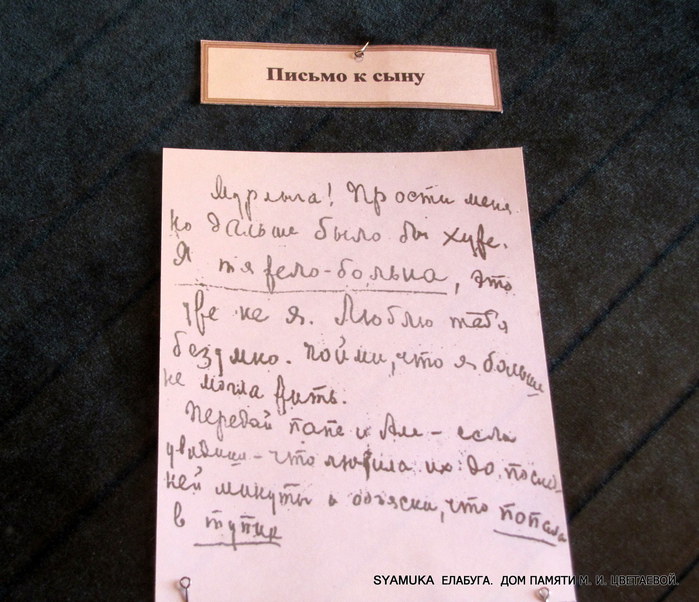 Письмо к сыну
Мурлыга! Прости меня
но дальше было бы хуже.
Я тяжело-больна, это
уже не я. Люблю тебя
безумно. Пойми, что я больше
не могла жить.
Передай папе и Але – если
увидишь – что любила их до послед-
ней минуты и объясни, что попала
в тупик
SYAMUKA ЕЛАБУГА. ДОМ ПАМЯТИ М. И. ЦВЕТАЕВОЙ.